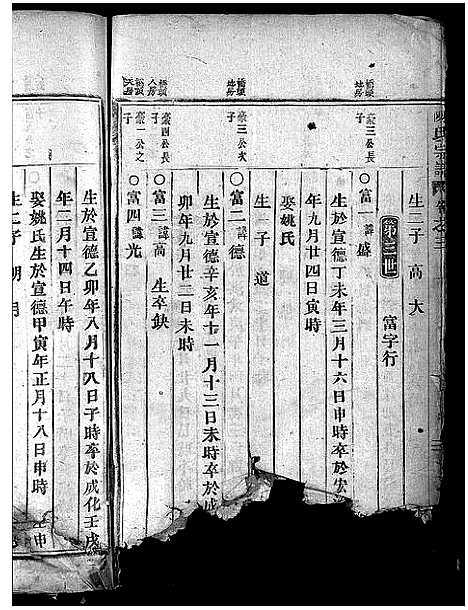 氏宗譜
卷之三
生二子 高 大
第三世
富字行
橋頭地房
豪三公長子
○富一諱盛
生於宣德丁未年三月十六日申時卒於弘
年九月廿四日寅時
娶姚氏
橋頭地房
豪三公次子
○富二諱德
生於宣德辛亥年十一月十三日未時卒於成
卯年九月廿二日未時
生一子道
橋頭人房
豪四公長子
○富三諱高 生卒缺
橋頭天房
豪一公之子
○富四諱光
生於宣德乙卯年八月十八日子時卒於成化壬戌
年二月十四日午時
娶姚氏生於宣德甲寅年正月十八日申時
申時
生二子 朝 明